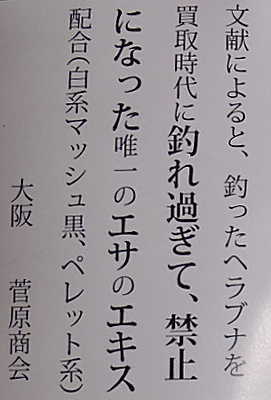 文献によると、釣ったヘラブナを
買取時代に釣れ過ぎて、禁止
になった唯一のエサのエキス
配合（白系マッシュ黒、ペレット系）
大阪　菅原商会